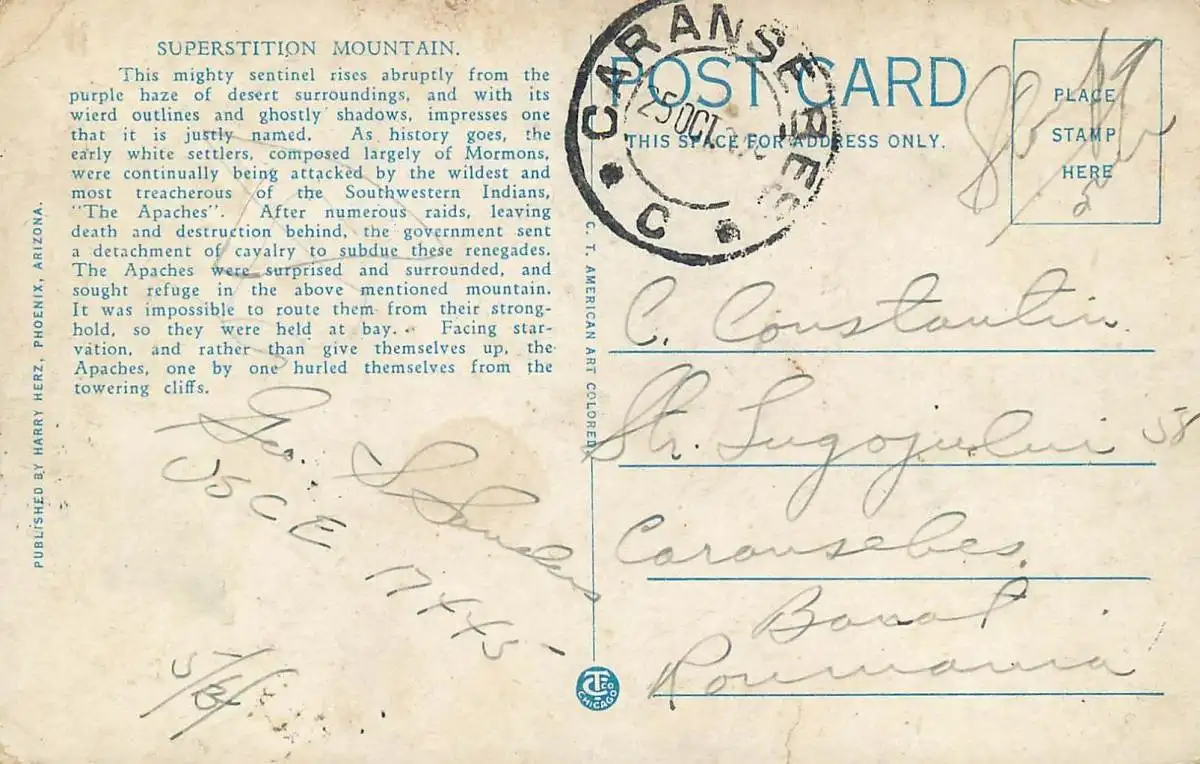 SUPERSTITION MOUNTAIN.
This mighty sentinel rises abruptly from the
purple haze of desert surroundings, and with its
wierd outlines and ghostly shadows, impresses one
that it is justly named. As history goes, the
early white settlers, composed largely of Mormons,
were continually being attacked by the wildest and
most treacherous of the Southwestern Indians,
"The Apaches". After numerous raids, leaving
death and destruction behind, the government sent
a detachment of cavalry to subdue these renegades.
The Apaches were surprised and surrounded, and
sought refuge in the above mentioned mountain.
It was impossible to route them from their strong-
hold, so they were held at bay. Facing star-
vation, and rather than give themselves up, the
Apaches, one by one hurled themselves from the
towering cliffs.
PUBLISHED BY HARRY HERZ, PHOENIX, ARIZONA.
Geo. S
USCE 17445
C. T. AMERICAN ART COLORED
CTCo
CHICAGO
CARANSEBEȘ
25 OCT.
C
POST CARD
THIS SPACE FOR ADDRESS ONLY.
PLACE
STAMP
HERE
C. Constantin
Str. Lugojului 58
Caransebes.
Banat
Roumania